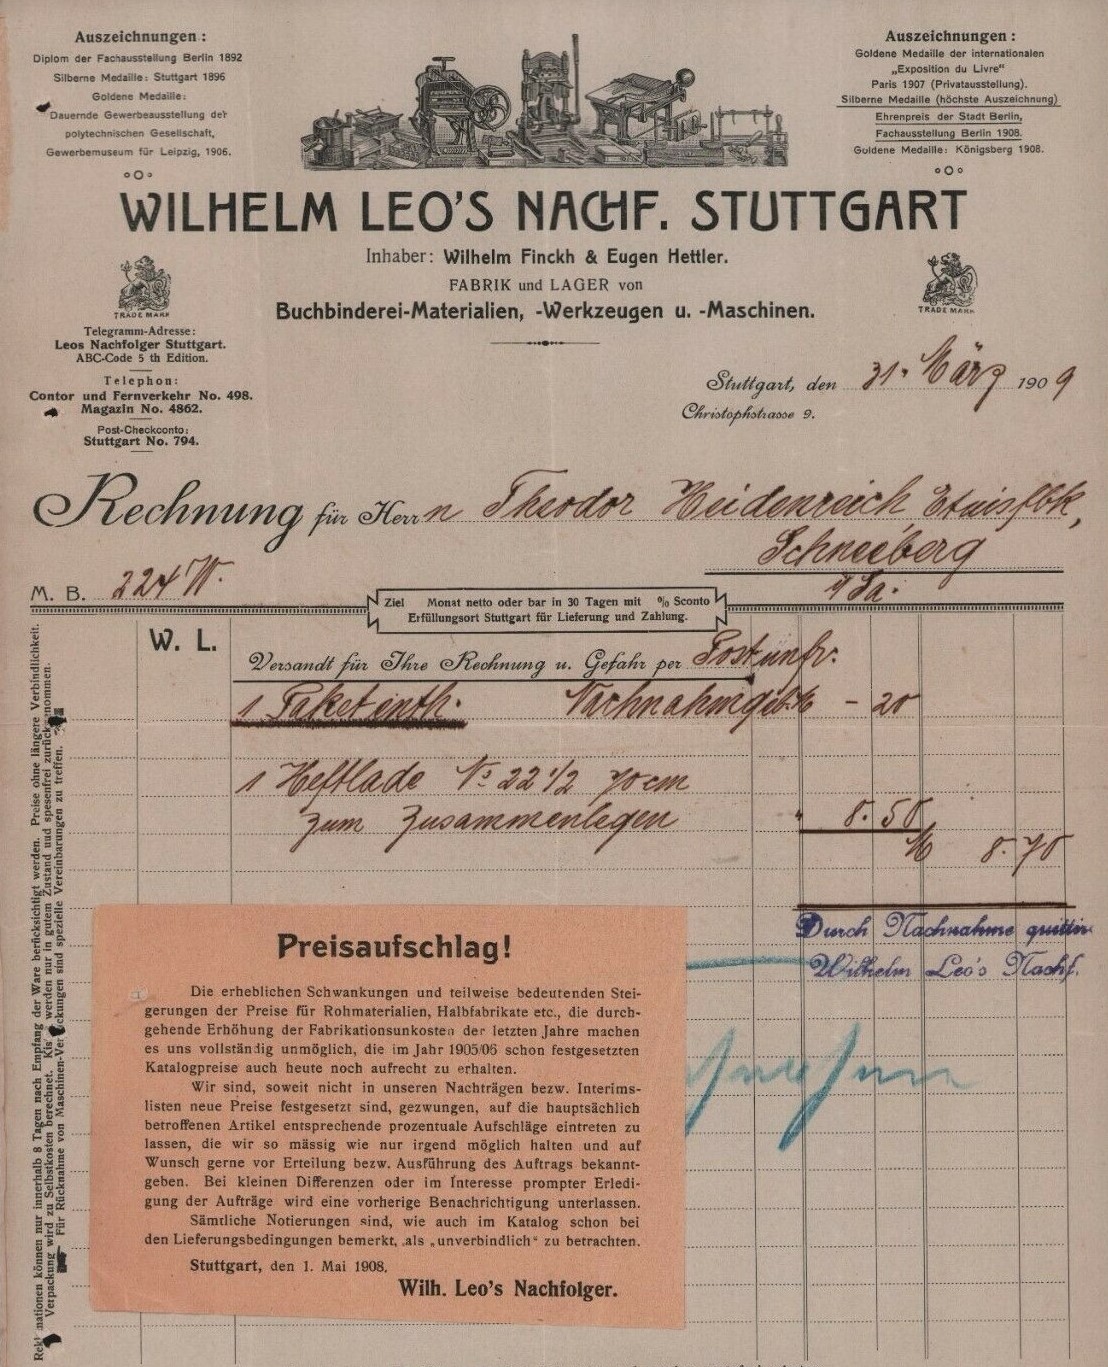 Auszeichnungen:
Diplom der Fachausstellung Berlin 1892
Silberne Medaille: Stuttgart 1896
Goldene Medaille:
Dauernde Gewerbeausstellung der
polytechnischen Gesellschaft,
Gewerbemuseum für Leipzig, 1906.
Auszeichnungen:
Goldene Medaille der internationalen
„Exposition du Livre“
Paris 1907 (Privatausstellung).
Silberne Medaille (höchste Auszeichnung)
Ehrenpreis der Stadt Berlin,
Fachausstellung Berlin 1908.
Goldene Medaille: Königsberg 1908.
WILHELM LEO'S NACHF. STUTTGART
Inhaber: Wilhelm Finckh & Eugen Hettler.
FABRIK und LAGER von
Buchbinderei-Materialien, -Werkzeugen u. -Maschinen.
TRADE MARK
TRADE MARK
Telegramm-Adresse:
Leos Nachfolger Stuttgart.
ABC-Code 5 th Edition.
Telephon:
Contor und Fernverkehr No. 498.
Magazin No. 4862.
Post-Checkconto:
Stuttgart No. 794.
Stuttgart, den 31. März 1909
Christophstrasse 9.
Rechnung für Herrn Theodor Heidenreich, Etuisfbk,
Schneeberg
i/Sa.
M. B. 224 W.
Ziel Monat netto oder bar in 30 Tagen mit % Sconto
Erfüllungsort Stuttgart für Lieferung und Zahlung.
W. L.
Versandt für Ihre Rechnung u. Gefahr per Post unfr.
1 Paket enth. Nachnahmgeb. M - 20
1 Heftlade No 22 1/2 70 cm
zum Zusammenlegen " 8. 50
M 8. 70
Durch Nachnahme quittir
Wilhelm Leo's Nachf.
Preisaufschlag!
Die erheblichen Schwankungen und teilweise bedeutenden Stei-
gerungen der Preise für Rohmaterialien, Halbfabrikate etc., die durch-
gehende Erhöhung der Fabrikationsunkosten der letzten Jahre machen
es uns vollständig unmöglich, die im Jahr 1905/06 schon festgesetzten
Katalogpreise auch heute noch aufrecht zu erhalten.
Wir sind, soweit nicht in unseren Nachträgen bezw. Interims-
listen neue Preise festgesetzt sind, gezwungen, auf die hauptsächlich
betroffenen Artikel entsprechende prozentuale Aufschläge eintreten zu
lassen, die wir so mässig wie nur irgend möglich halten und auf
Wunsch gerne vor Erteilung bezw. Ausführung des Auftrags bekannt-
geben. Bei kleinen Differenzen oder im Interesse prompter Erledi-
gung der Aufträge wird eine vorherige Benachrichtigung unterlassen.
Sämtliche Notierungen sind, wie auch im Katalog schon bei
den Lieferungsbedingungen bemerkt, als „unverbindlich“ zu betrachten.
Stuttgart, den 1. Mai 1908.
Wilh. Leo's Nachfolger.
können nur innerhalb 8 Tagen nach Empfang der Ware berücksichtigt werden. Preise ohne längere Verbindlichkeit.
Verpackung wird zu Selbstkosten berechnet. werden nur in gutem Zustand und spesenfrei zurückgenommen.
Für Rücknahme von Maschinen-Verpackungen sind spezielle Vereinbarungen zu treffen.